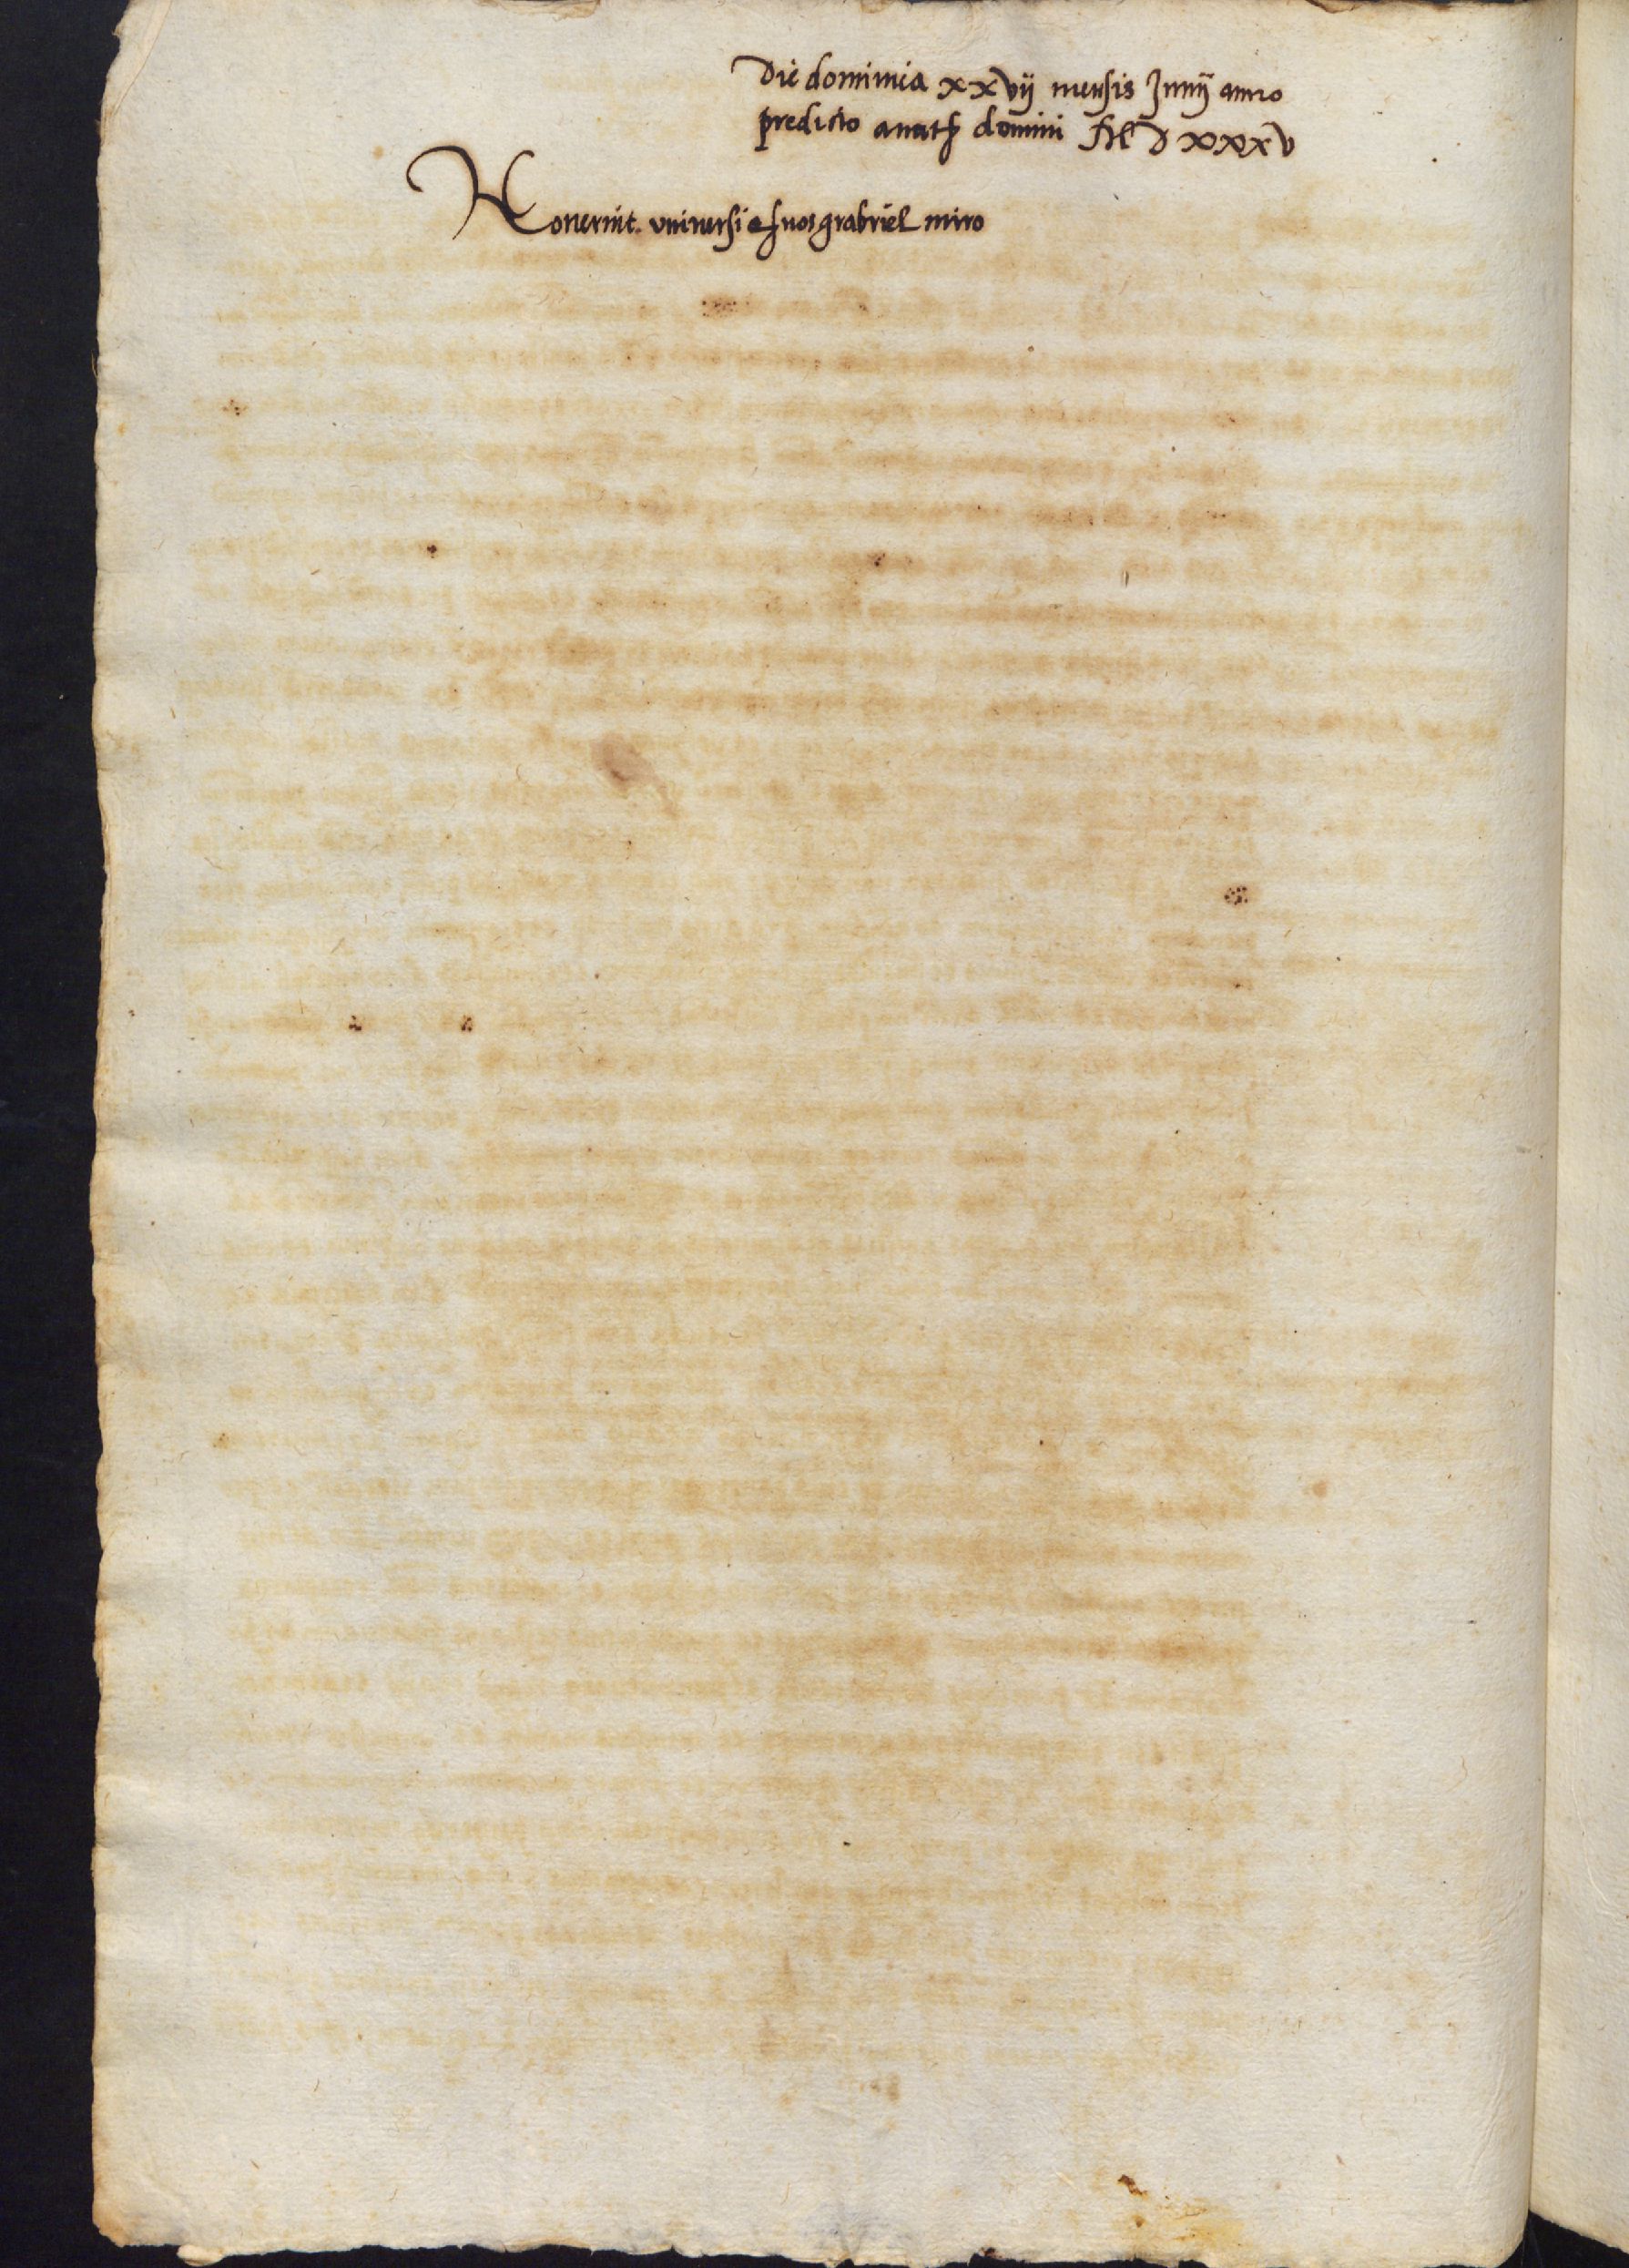 Die dominica xxvij mensis Junij anno
predicto a natȝ domini M D xxxv
Nouerint vniuersi q nos grabriel miro